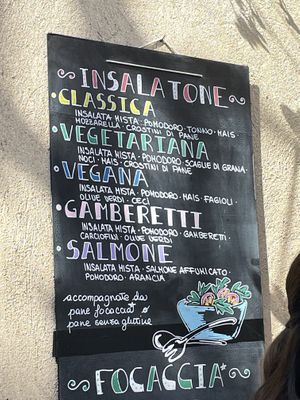 INSALATONE
• CLASSICA
INSALATA MISTA • POMODORO • TONNO • MAIS •
MOZZARELLA • CROSTINI DI PANE
• VEGETARIANA
INSALATA MISTA • POMODORO • SCAGLIE DI GRANA •
NOCI • MAIS • CROSTINI DI PANE
• VEGANA
INSALATA MISTA • POMODORO • MAIS • FAGIOLI •
OLIVE VERDI • CECI
• GAMBERETTI
INSALATA MISTA • POMODORO • GAMBERETTI •
CARCIOFINI • OLIVE VERDI
• SALMONE
INSALATA MISTA • SALMONE AFFUMICATO •
POMODORO • ARANCIA
accompagnate da
pane focaccia* o
pane senza glutine
FOCACCIA*